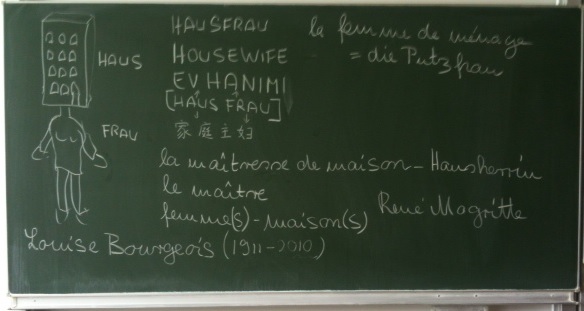 HAUS
FRAU
HAUSFRAU
HOUSEWIFE
EV HANIMI
[HAUS FRAU]
家庭主妇
la femme de ménage
= die Putzfrau
la maîtresse de maison – Hausherrin
le maître
femme(s) - maison(s)
René Magritte
Louise Bourgeois (1911-2010)